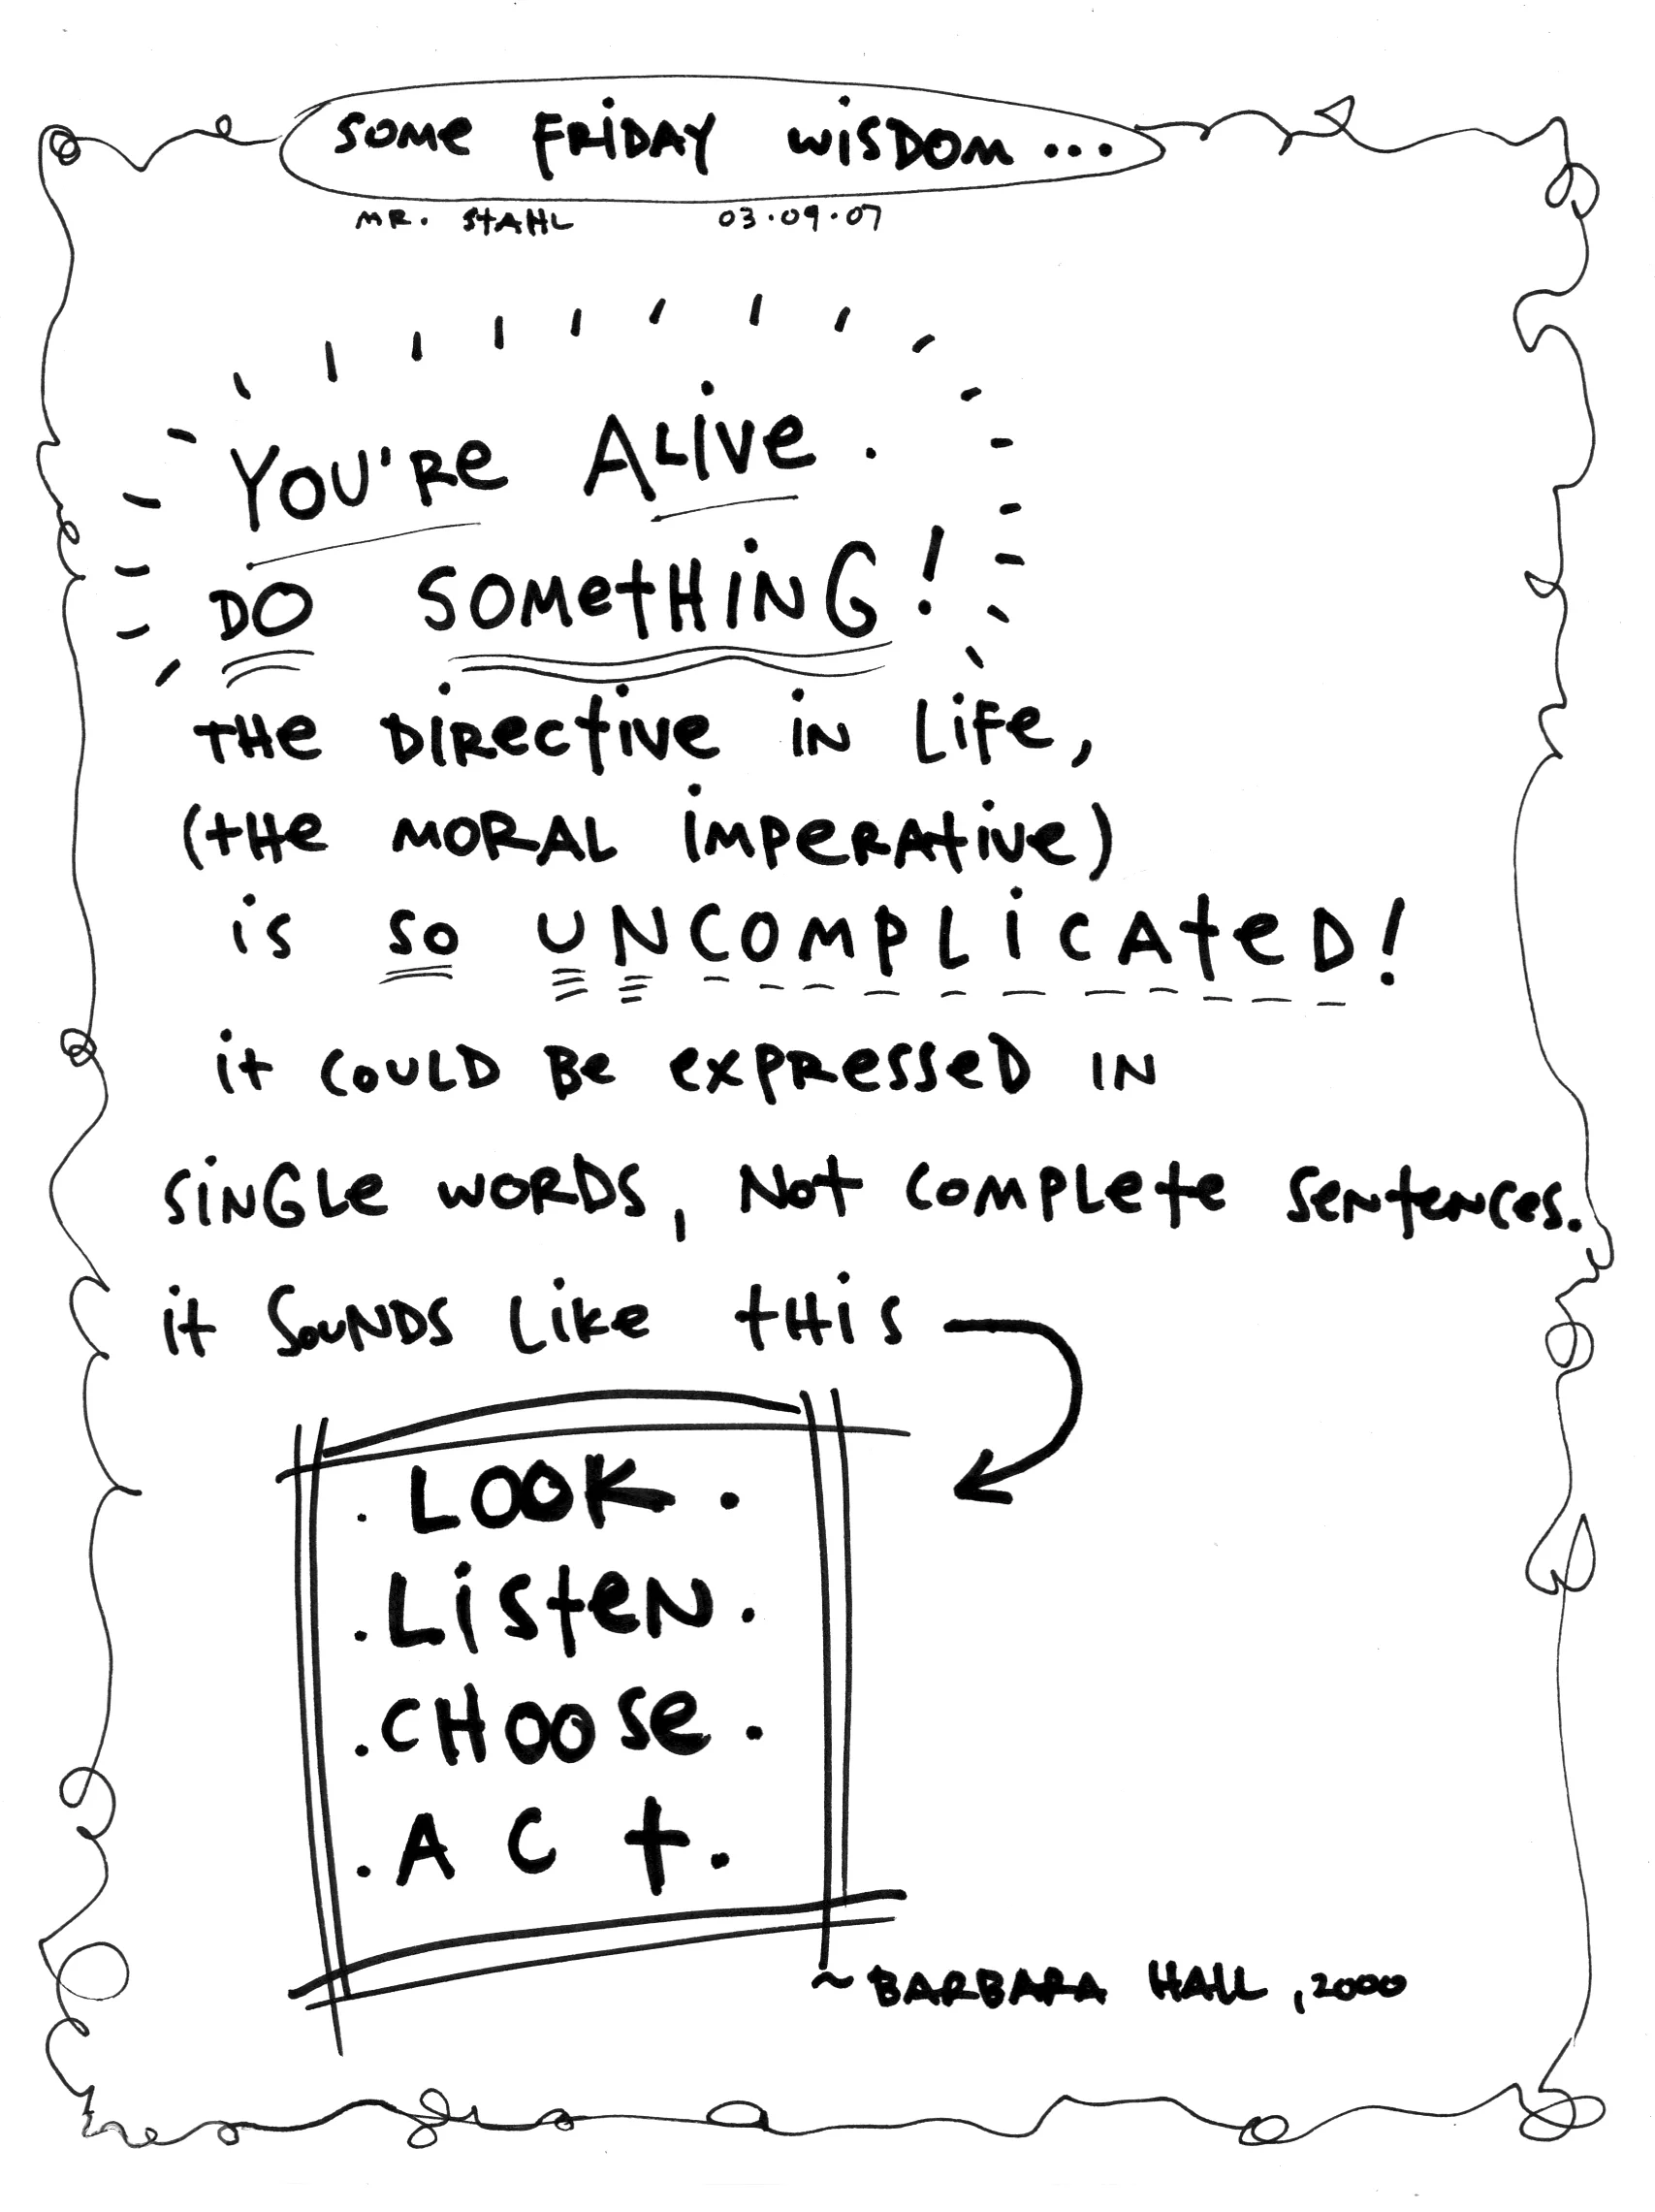 SOME FRIDAY WISDOM...
MR. STAHL 03.09.07
YOU'RE ALIVE.
DO SOMETHING!
THE DIRECTIVE IN LIFE,
(THE MORAL IMPERATIVE)
is so UNCOMPLICATED!
it COULD BE EXPRESSED IN
SINGLE WORDS, NOT COMPLETE SENTENCES.
it SOUNDS LIKE THIS
. LOOK.
. LISTEN.
. CHOOSE.
. ACT.
~ BARBARA HALL, 2000